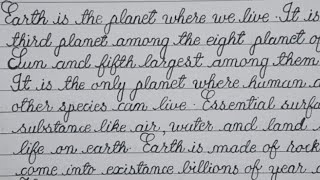 Earth is the planet where we live. It is
third planet among the eight planet of
Sun and fifth largest among them
It is the only planet where human a
other species can live. Essential surfa
substance like air, water and land
life on earth. Earth is made of rock
come into existance billions of year a